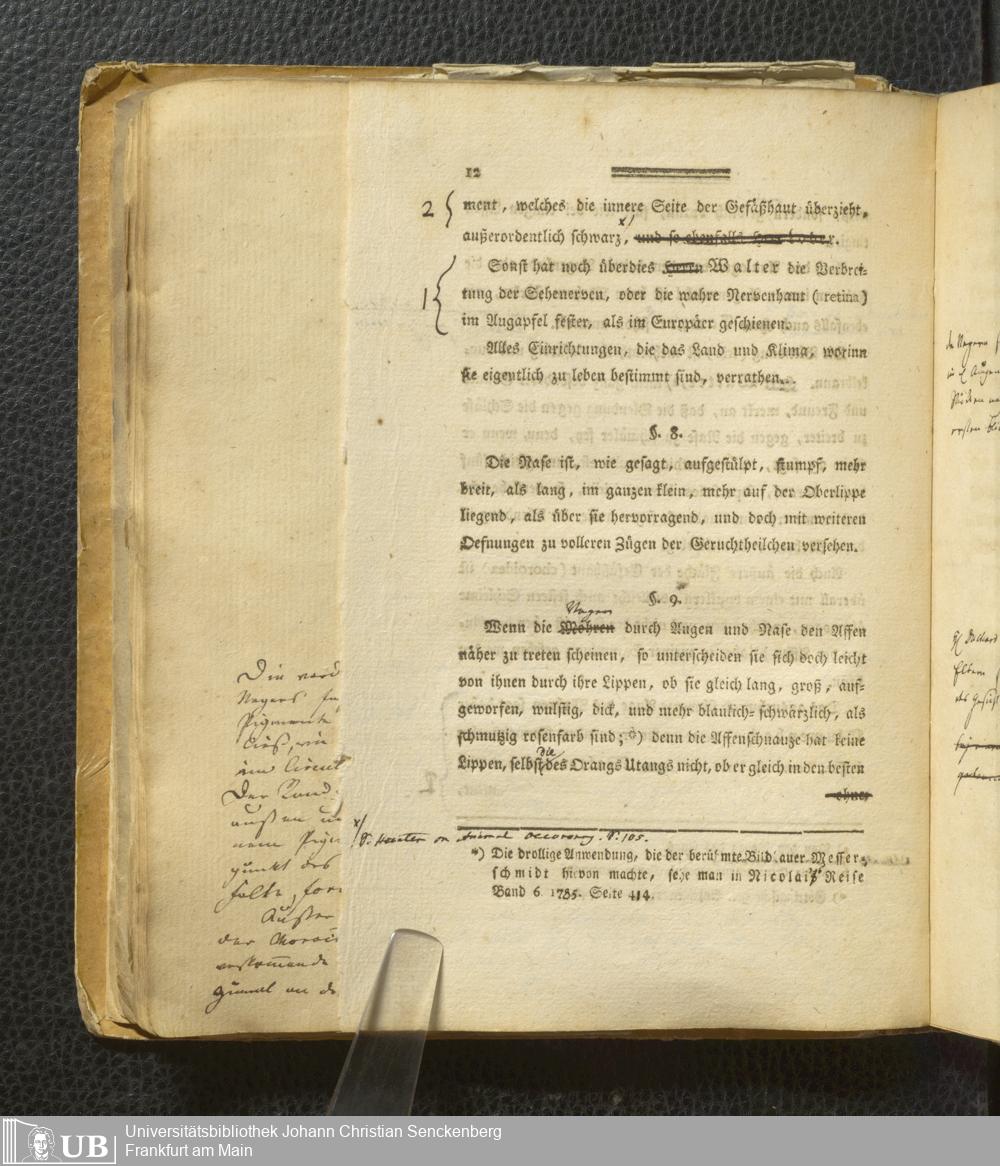 12
2 ment, welches die innere Seite der Gefäßhaut überzieht,
außerordentlich schwarz, x)
Sonst hat noch überdies Herrn Walter die Verbrei-
1 tung der Sehenerven, oder die wahre Nervenhaut (retina)
im Augapfel fester, als im Europäer geschienen.
Alles Einrichtungen, die das Land und Klima, worinn
sie eigentlich zu leben bestimmt sind, verrathen.
§. 8.
Die Nase ist, wie gesagt, aufgestülpt, stumpf, mehr
breit, als lang, im ganzen klein, mehr auf der Oberlippe
liegend, als über sie hervorragend, und doch mit weiteren
Oefnungen zu volleren Zügen der Geruchtheilchen versehen.
§. 9.
Neger
Wenn die Mohren durch Augen und Nase den Affen
näher zu treten scheinen, so unterscheiden sie sich doch leicht
von ihnen durch ihre Lippen, ob sie gleich lang, groß, auf-
geworfen, wulstig, dick, und mehr blaulich-schwärzlich, als
schmutzig rosenfarb sind; *) denn die Affenschnauze hat keine
die
Lippen, selbst des Orangs Utangs nicht, ob er gleich in den besten
ohner
x) S. Hunter on Animal Oeconomy. P. 105.
*) Die drollige Anwendung, die der berühmte Bildhauer Messer-
schmidt hievon machte, sehe man in Nicolai's Reise
Band 6. 1785. Seite 414.
Die
Negers
Pigmente
Der Rand
außen
punkt des
Falte, for
Außer
der Choroi
zumal an de
Universitätsbibliothek Johann Christian Senckenberg
Frankfurt am Main
UB